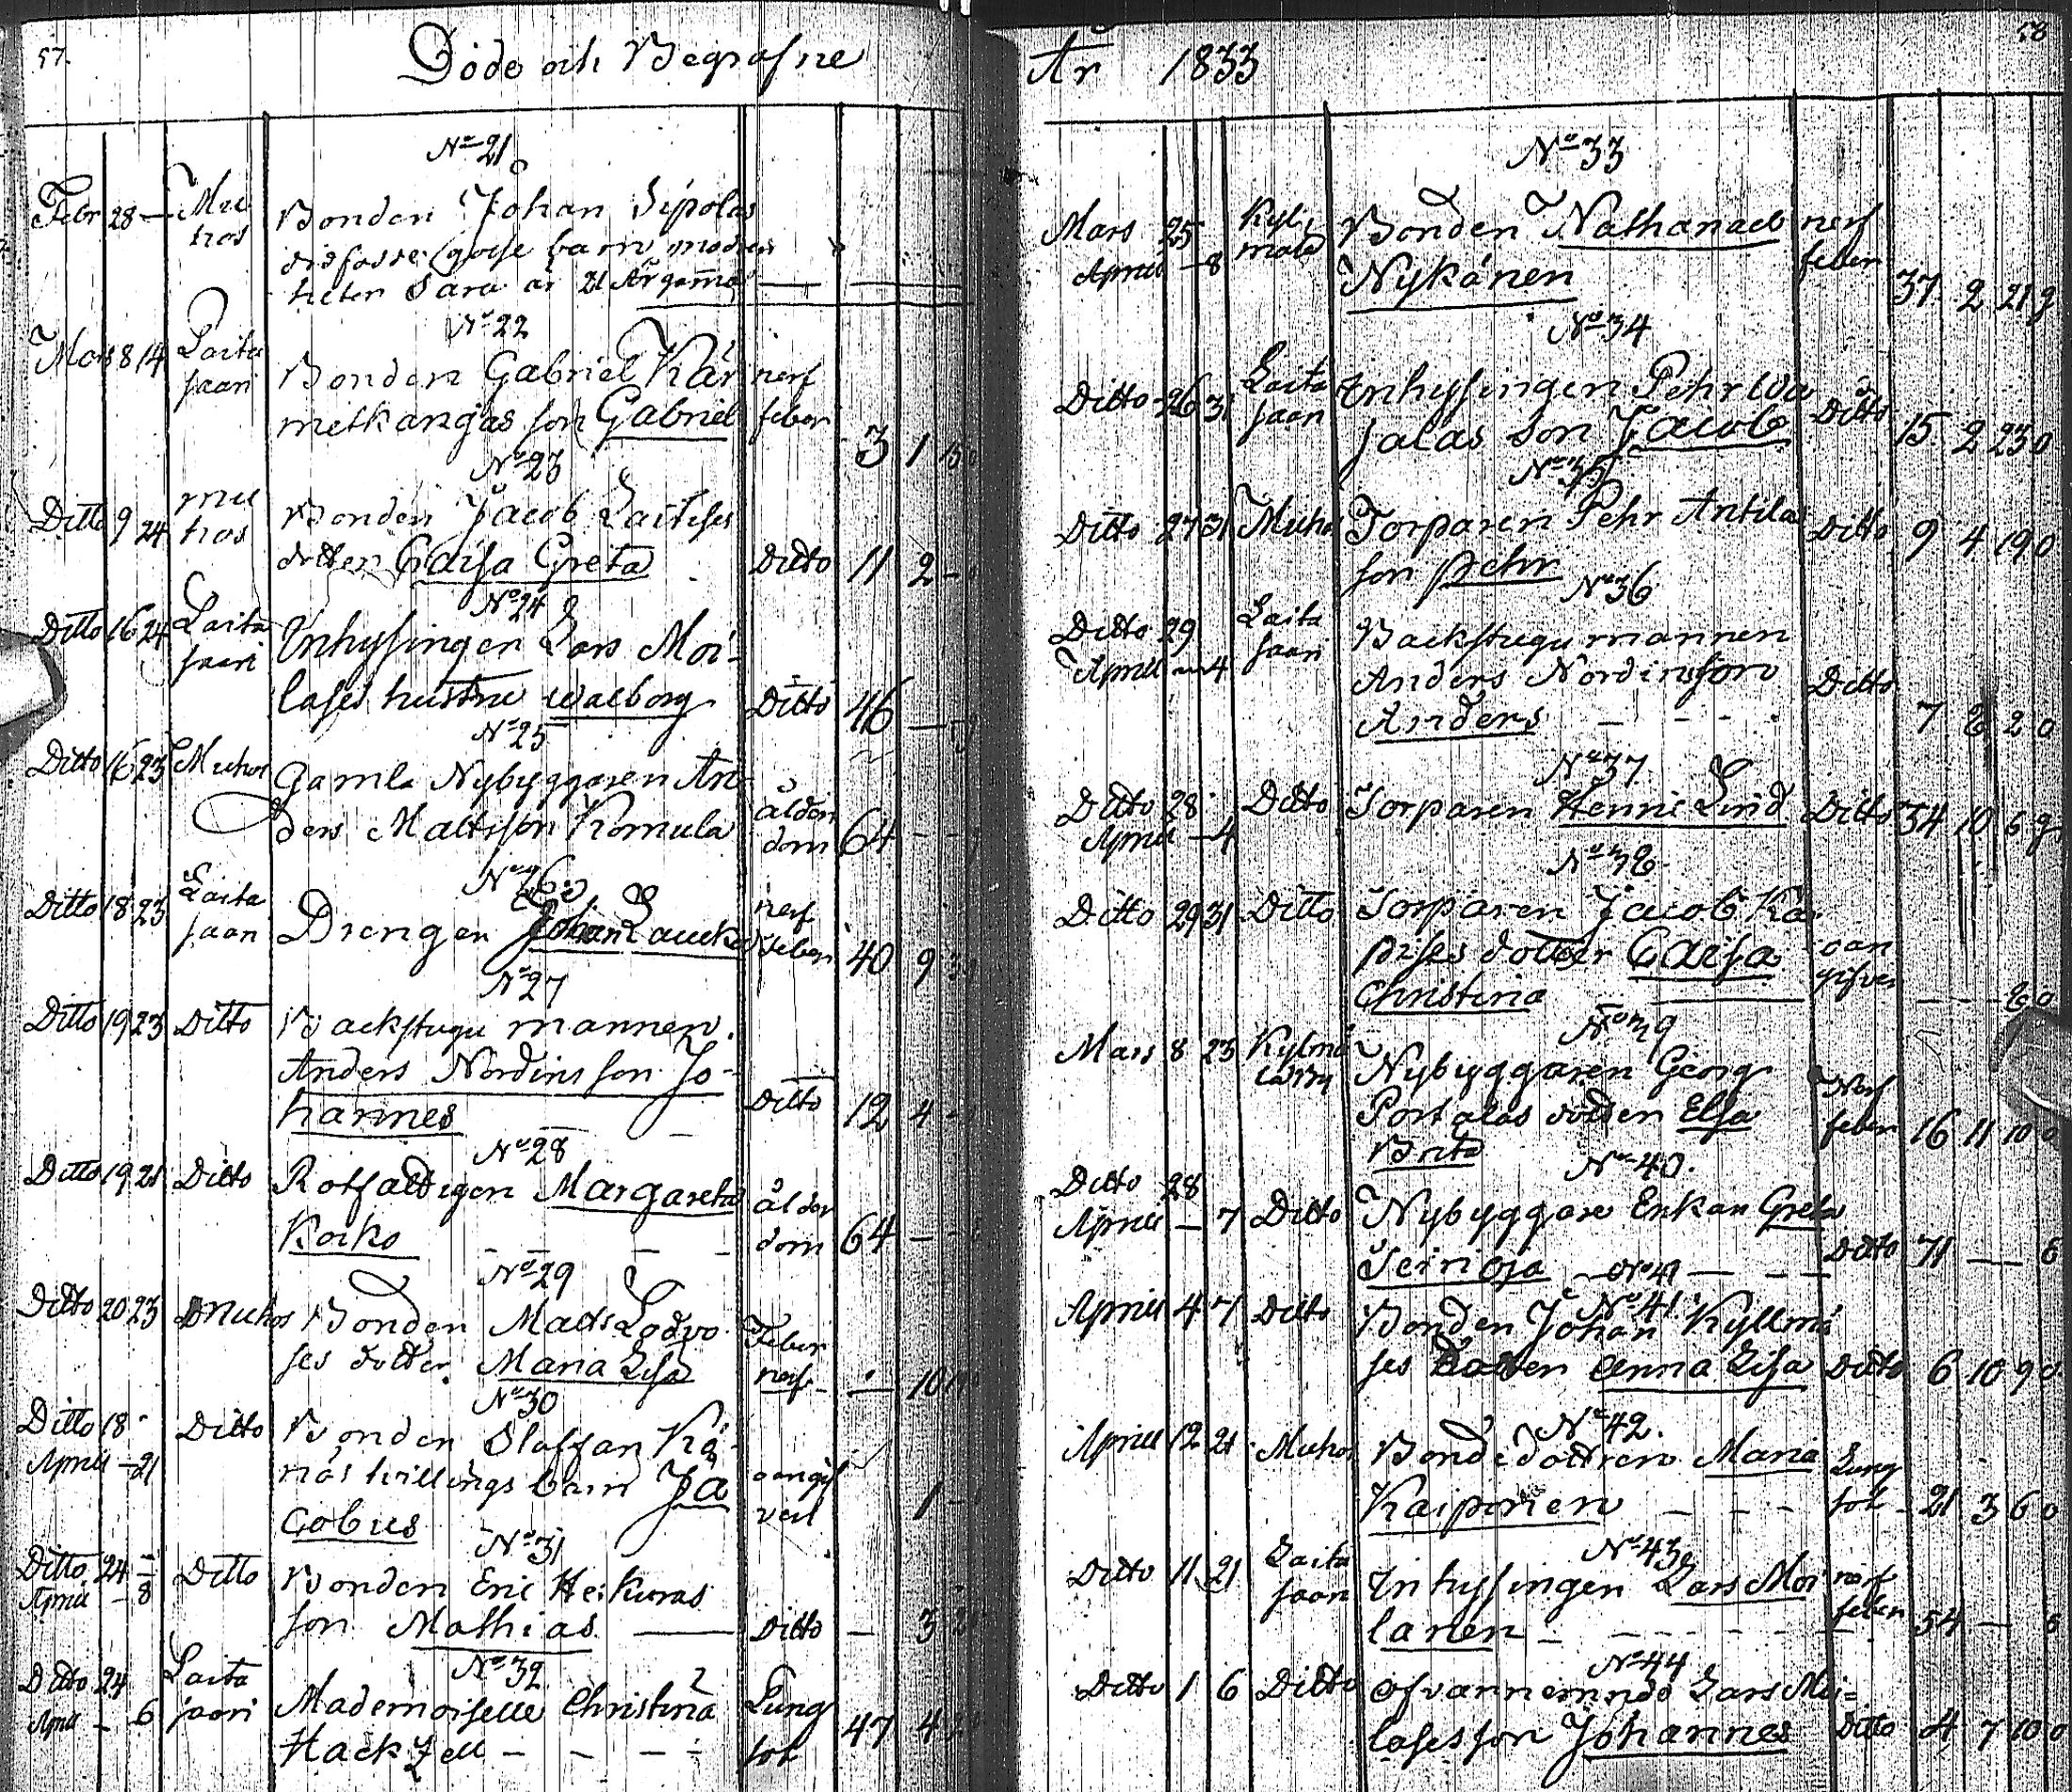 57.
Döde och Begrafne
No 21
Febr 28 — Mu
hos
Bonden Johan Sipolas
dödfödde gosse barn, modren
heter Sara är 21 År gam̄al
No 22
Mars 8 14 Laita
saari
Bonden Gabriel Kär
metkangas son Gabriel
nerf
feber
3 1
No 23
Ditto 9 24 mu
hos
Bonden Jacob Laitises
dotter Caisa Greta Ditto 11 2 —
No 24
Ditto 16 24 Laita
saari
Inhysingen Lars Moi-
lases hustru Walborg Ditto 46 —
No 25
Ditto 16 23 Muhos
Gamla Nybyggaren An
ders Mattsson Komula
ålder
dom 64 — —
No 26
Ditto 18 23 Laita
saari
Drengen Johan
nerf
feber 40 9
No 27
Ditto 19 23 Ditto
Backstugu mannen
Anders Nordins son Jo-
hannes Ditto 12 4
No 28
Ditto 19 21 Ditto
Rotfattigen Margareta
Koiko
ålder
dom 64 —
No 29
Ditto 20 23 Muhos
Bonden Matts Lodvo
ses dotter Maria Lisa
Feber
nerf — 10
No 30
Ditto 18
April — 21 Ditto
Bonden Staffan Kä-
näs tvillings barn Ja
cobus
oangif
vet 1
No 31
Ditto 24
April — 8 Ditto
Bonden Eric Heikuras
son Mathias — Ditto — 3
No 32
Ditto 24
April — 6
Laita
saari
Mademoiselle Christina
Hackzell — — — —
Lung
sot 47 4
58
År 1833
No 33
Mars 25
April — 8
Kyli
mäld
Bonden Nathanael
Nykänen
nerf
feber
37 2 21 9
No 34
Ditto 26 31 Laita
saari
Inhysingen Pehr Wa
jalas Son Jacob Ditto 15 2 23 0
No 35
Ditto 27 31 Muhos
Torparen Pehr Antila
son Pehr Ditto 9 4 19 0
No 36
Ditto 29
April — 4
Laita
saari
Backstugu mannen
Anders Nordins son
Anders — — — Ditto 7 8 2 0
No 37
Ditto 28
April — 4
Ditto Torparen Henric Lind Ditto 34 10 6 9
No 38
Ditto 29 31 Ditto
Torparen Jacob Ka
pises dotter Caisa
Christina
oan
gifven — — 8 0
No 39
Mars 8 23 Kylmä
Nybyggaren Georg
Portalas dotter Elsa
Brita
Nerf
feber 16 11 10 0
No 40.
Ditto 28
April — 7 Ditto
Nybyggare Enkan Greta
Seirioja — — — Ditto 71 —
No 41
No 41.
April 4 7 Ditto
Bonden Johan Kyllmä
ses dotter Anna Lisa Ditto 6 10 9 0
No 42.
April 12 21 Muhos
Bondedottren Maria
Kaiponen — — —
Lung
sot 21 3 6 0
No 43
Ditto 11 21 Laita
saari
Inhysingen Lars Moi
lanen — — —
nerf
feber 54 —
No 44
Ditto 1 6 Ditto
ofvannemnde Lars Moi-
lases son Johannes Ditto 4 7 10 0